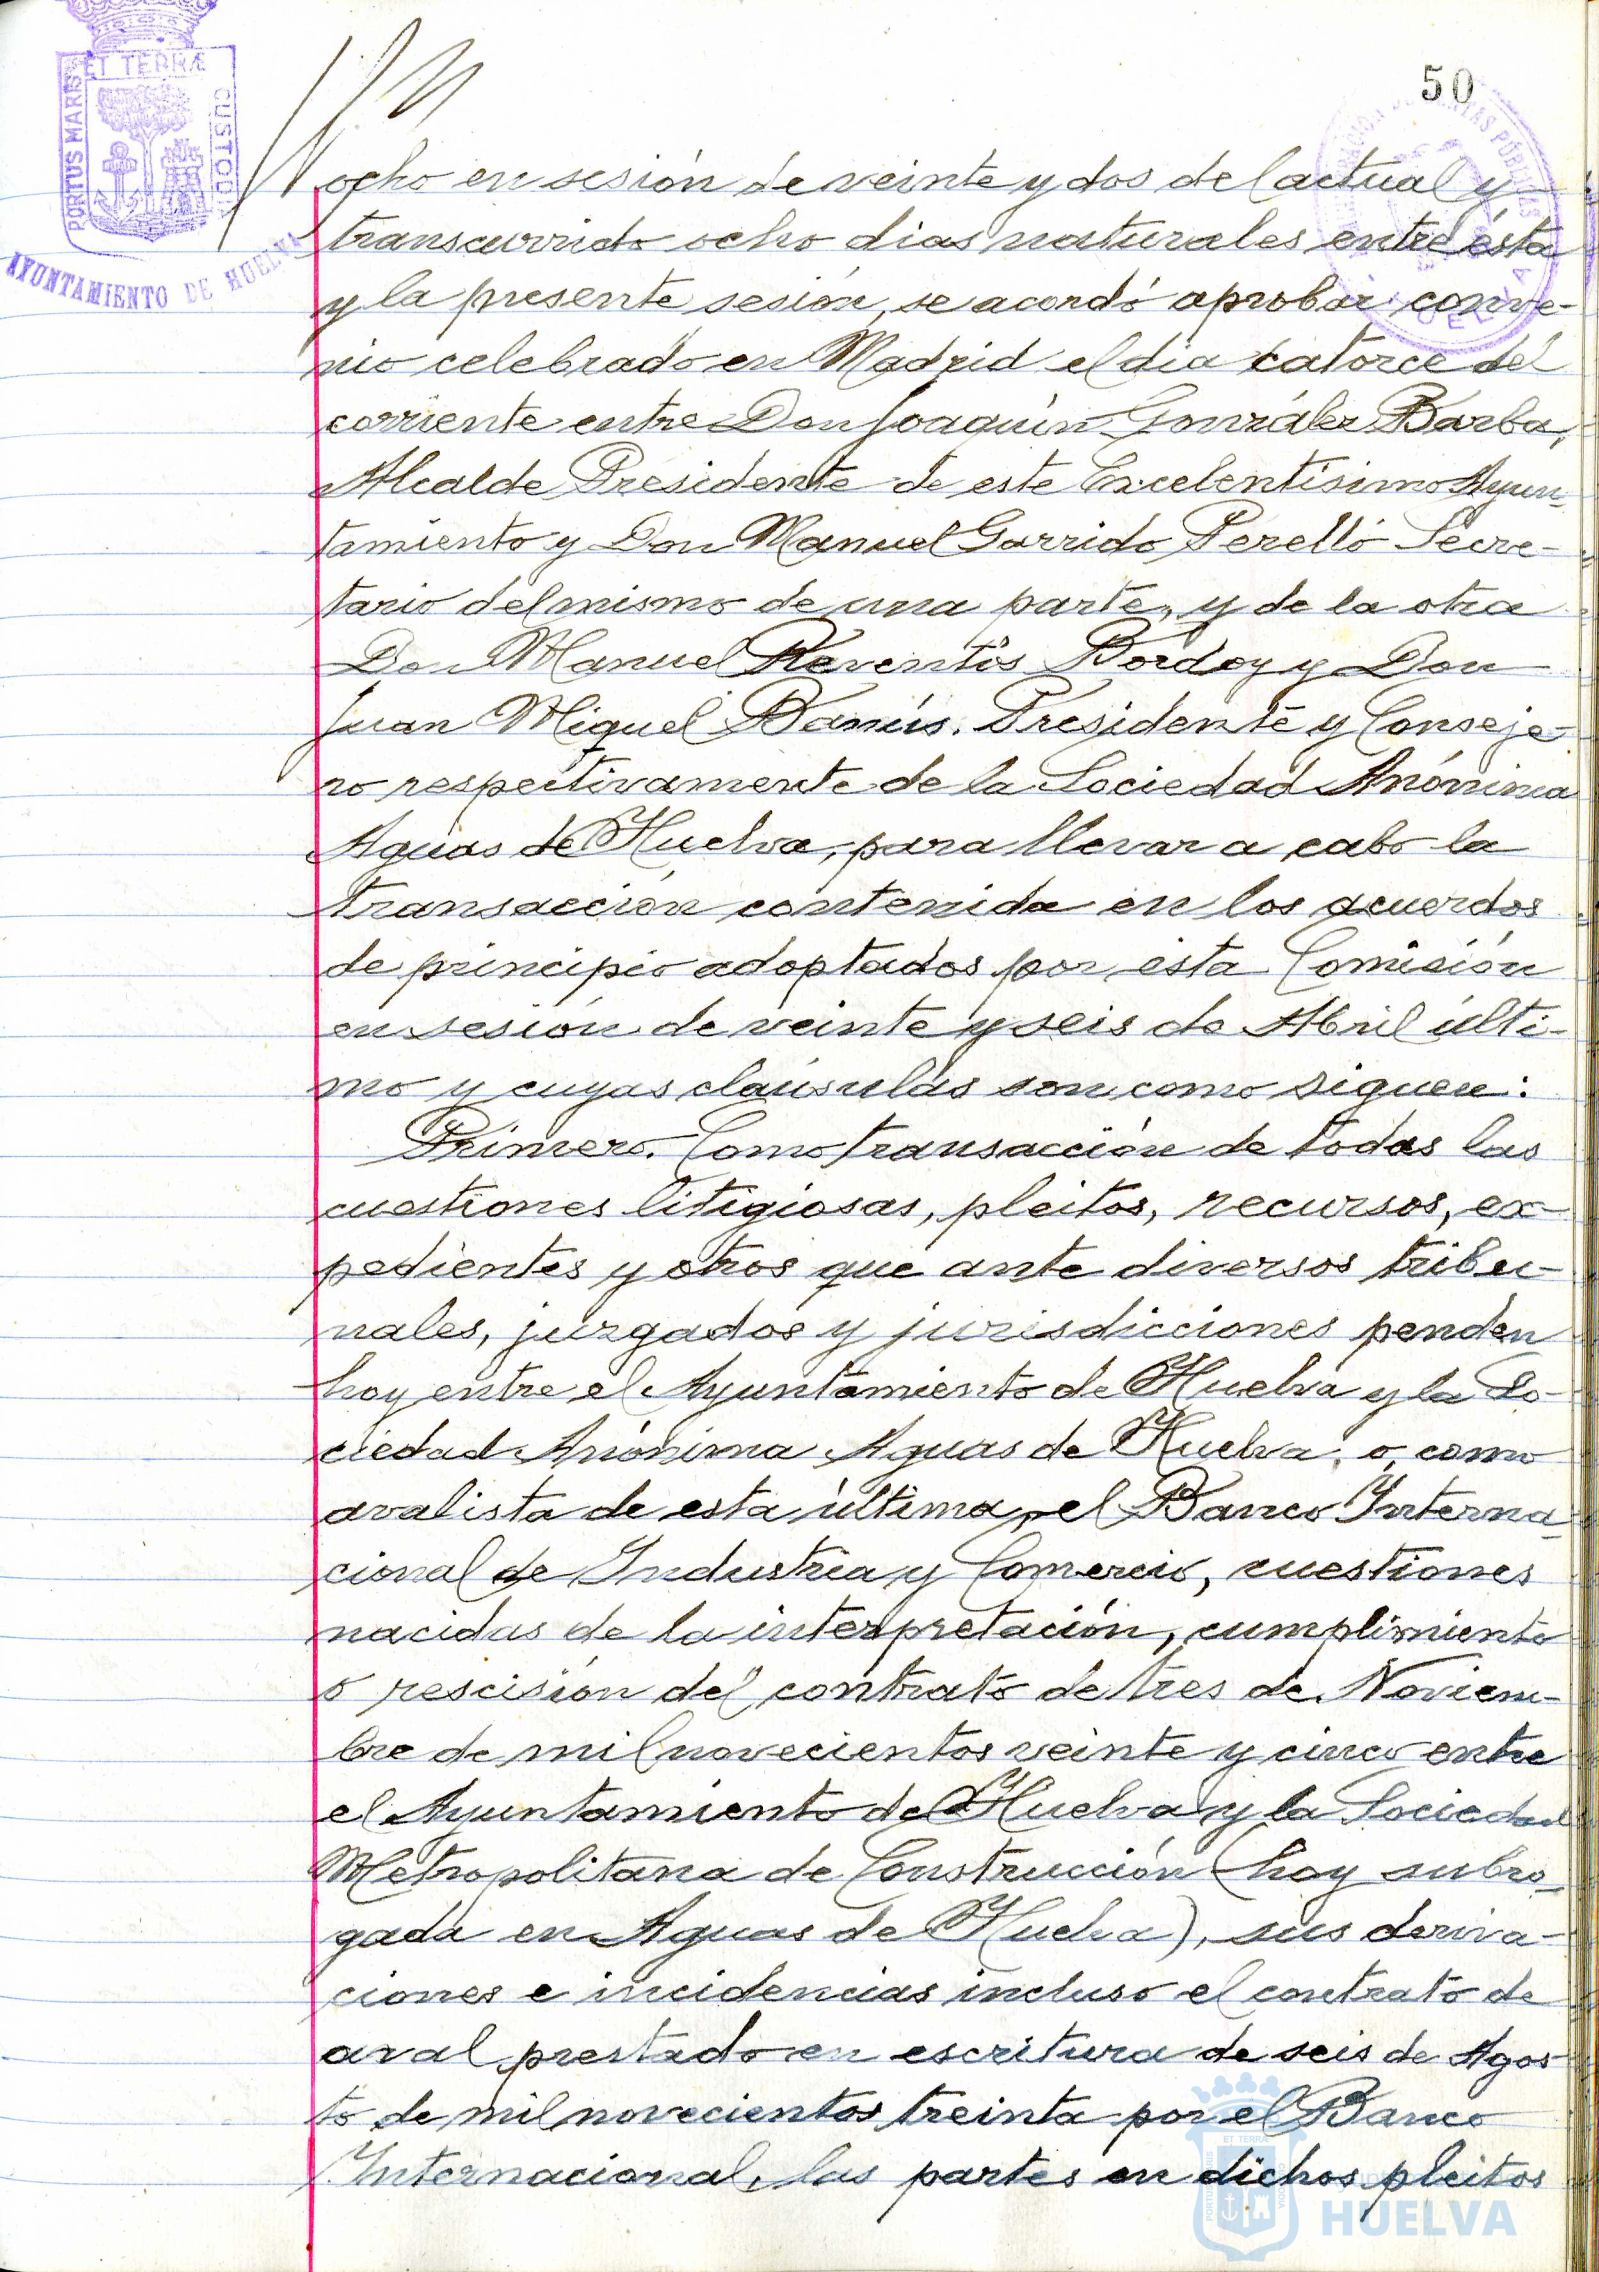 50
ET TERRÆ
PORTUS MARIS
CUSTODIA
AYUNTAMIENTO DE HUELVA
ocho en sesión de veinte y dos del actual y
transcurrido ocho dias naturales entre ésta
y la presente sesión, se acordó aprobar conve-
nio celebrado en Madrid el dia catorce del
corriente entre Don Joaquín González Barba,
Alcalde Presidente de este Excelentísimo Ayun-
tamiento y Don Manuel Garrido Perelló Secre-
tario del mismo de una parte, y de la otra
Don Manuel Reventós Bordoy y Don
Juan Miguel Banús. Presidente y Conseje-
ro respectivamente de la Sociedad Anónima
Aguas de Huelva, para llevar a cabo la
transacción contenida en los acuerdos
de principio adoptados por esta Comisión
en sesión de veinte y seis de Abril últi-
mo y cuyas claúsulas son como siguen:
Primero. Como transacción de todas las
cuestiones litigiosas, pleitos, recursos, ex-
pedientes y otros que ante diversos tribu-
nales, juzgados y jurisdicciones penden
hoy entre el Ayuntamiento de Huelva y la So-
ciedad Anónima Aguas de Huelva, o, como
avalista de esta última, el Banco Interna-
cional de Industria y Comercio, cuestiones
nacidas de la interpretación, cumplimiento
o rescisión del contrato de tres de Noviem-
bre de mil novecientos veinte y cinco entre
el Ayuntamiento de Huelva y la Sociedad
Metropolitana de Construcción (hoy subro-
gada en Aguas de Huelva), sus deriva-
ciones e incidencias incluso el contrato de
aval prestado en escritura de seis de Agos-
to de mil novecientos treinta por el Banco
Internacional, las partes en dichos pleitos
HUELVA